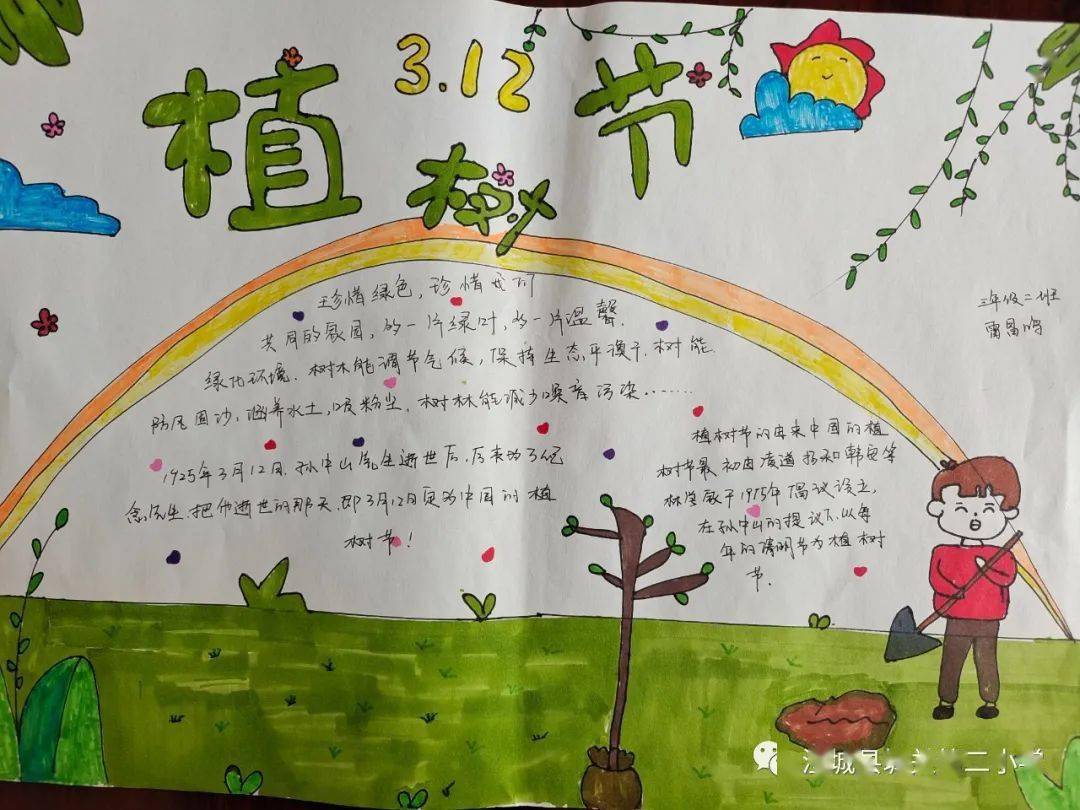 3.12
植树节
珍惜绿色,珍惜我们
共同的氛围,的一片绿叶,的一片温馨.
绿化环境.树木能调节气候,保持生态平衡.树能
防风固沙,涵养水土,吸粉尘.树林能减少噪音污染……
1925年3月12日.孙中山先生逝世后,后来为了纪
念先生.把他逝世的那天.即3月12日定为中国的植
树节!
植树节的由来中国的植
树节最初由凌道扬和韩安等
林学家于1915年倡议设立,
在孙中山的提议下.以每
年的清明节为植树
节.
三年级二班
雷昌鸣
城县 二小